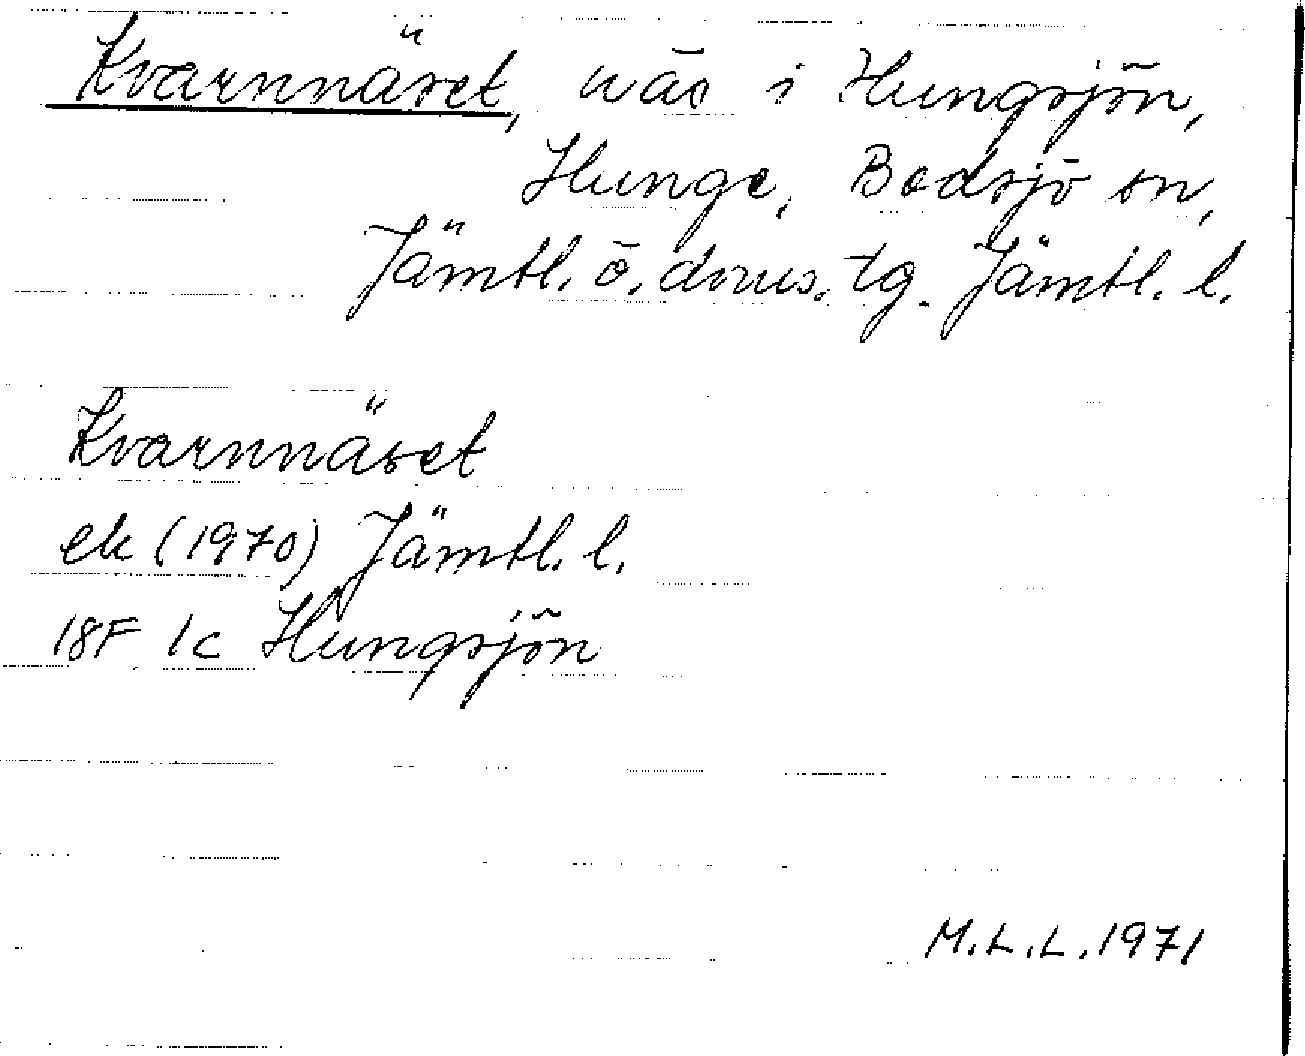 Kvarnnäset, näs i Hungsjön,
Hunge, Bodsjö sn,
Jämtl. ö. doms. tg. Jämtl. l.
Kvarnnäset
ek (1970) Jämtl. l.
18F 1c Hungsjön
M.L.L. 1971